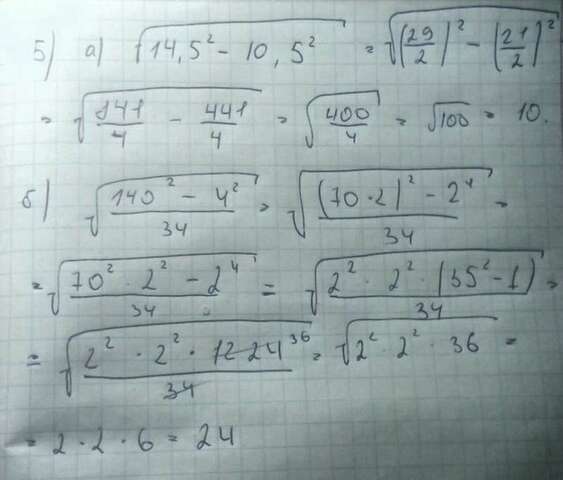 5) a) √(14,5² - 10,5²) = √((29/2)² - (21/2)²)
= √(841/4 - 441/4) = √(400/4) = √100 = 10.
б) √((140² - 4²)/34) = √(((70·2)² - 2⁴)/34) =
= √((70²·2² - 2⁴)/34) = √((2²·2²·(35² - 1))/34) =
= √((2²·2²·1224³⁶)/34) = √(2²·2²·36) =
= 2·2·6 = 24